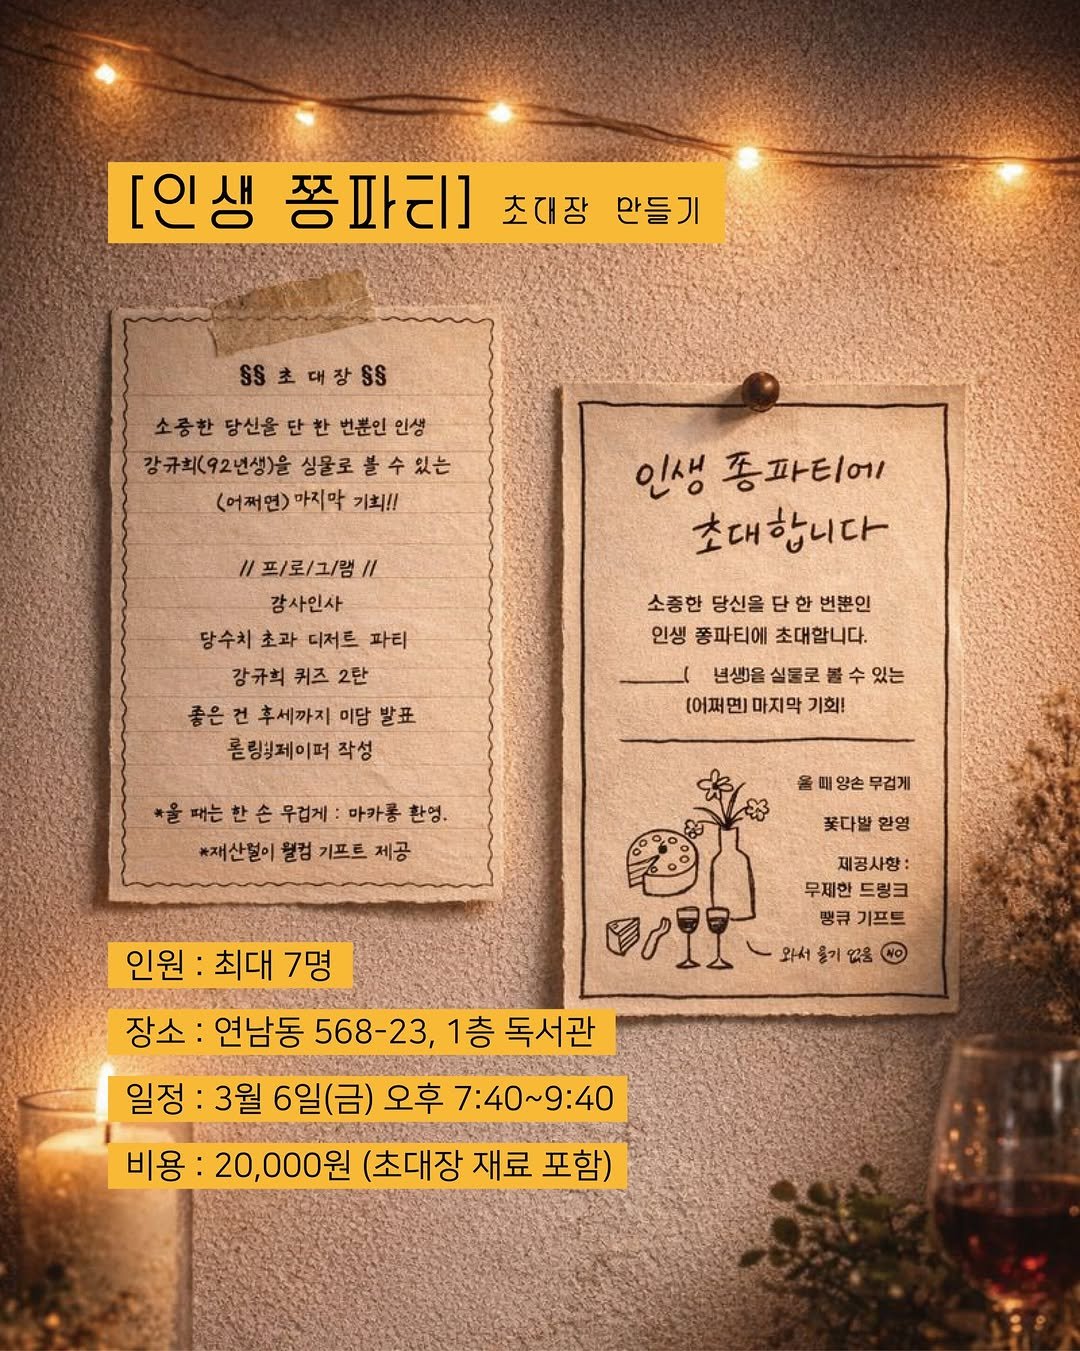 [인생 쫑파티] 초대장 만들기
§§ 초 대 장 §§
소중한 당신을 단 한 번뿐인 인생
강규희(92년생)을 실물로 볼 수 있는
(어쩌면) 마지막 기회!!
// 프/로/그/램 //
감사인사
당수치 초과 디저트 파티
강규희 퀴즈 2탄
좋은 건 후세까지 미담 발표
롤링페이퍼 작성
*올 때는 한 손 무겁게 : 마카롱 환영.
*재산털이 웰컴 기프트 제공
인생 쫑파티에
초대합니다
소중한 당신을 단 한 번뿐인
인생 쫑파티에 초대합니다.
______( 년생)을 실물로 볼 수 있는
(어쩌면) 마지막 기회!
올 때 양손 무겁게
꽃다발 환영
제공사항 :
무제한 드링크
땡큐 기프트
와서 울기 없음 NO
인원 : 최대 7명
장소 : 연남동 568-23, 1층 독서관
일정 : 3월 6일(금) 오후 7:40~9:40
비용 : 20,000원 (초대장 재료 포함)